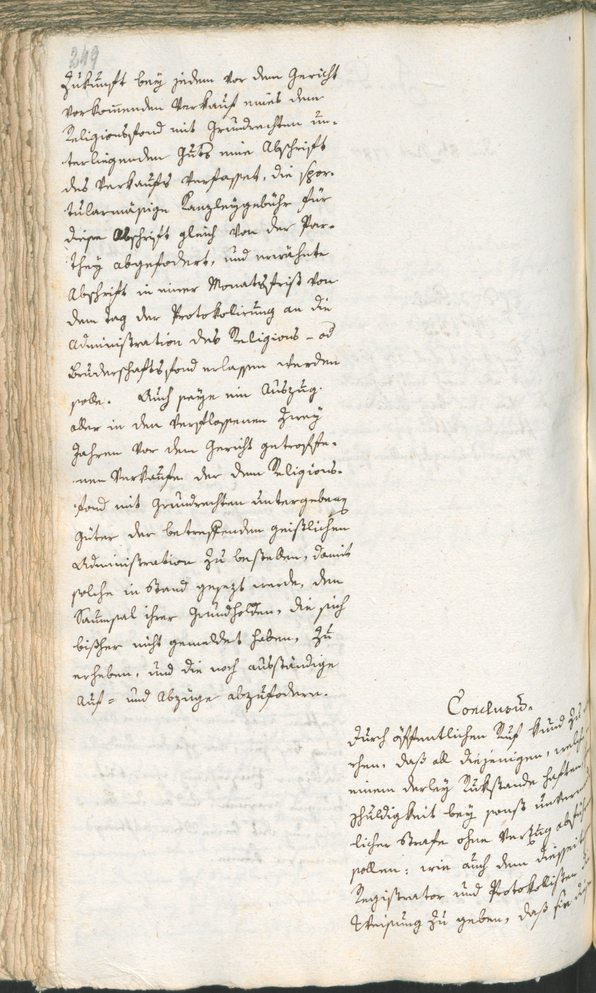 249
Zukunft bey jedem vor dem Gericht
vorkommenden Verkauf eines dem
Religionsfond mit Grundrechten un-
terliegenden Guts eine Abschrift
des Verkaufs verfasset, die spor-
tularmäsige Kanzleygebühr für
diese Abschrift gleich von der Par-
they abgefodert, und erwähnte
Abschrift in einer Monatsfrist von
dem Tag der Protokolirung an die
Administration des Religions- od
Bruderschaftsfond erlassen werden
solle. Auch seye ein Auszug
aller in den verflossenen zwey
Jahren vor dem Gericht getroffe-
nen Verkäufe der dem Religions-
fond mit Grundrechten untergebenen
Güter der betreffenden geistlichen
Administration zu bestellen, damit
solche in Stand gesezt werde, den
Saumsal ihrer Grundholden, die sich
bisher nicht gemeldet haben, zu
erheben, und die noch ausständige
Auf- und Abzüge abzufodern.
Conclusum.
Durch öffentlichen Ruf kund zu
chen, daß all diejenigen, welche
einem derley Rükstande haften
schuldigkeit bey sonst
lichen Strafe ohne Verzug
sollen: wie auch dem
Registrator und Protokollisten
Weisung zu geben, daß sie